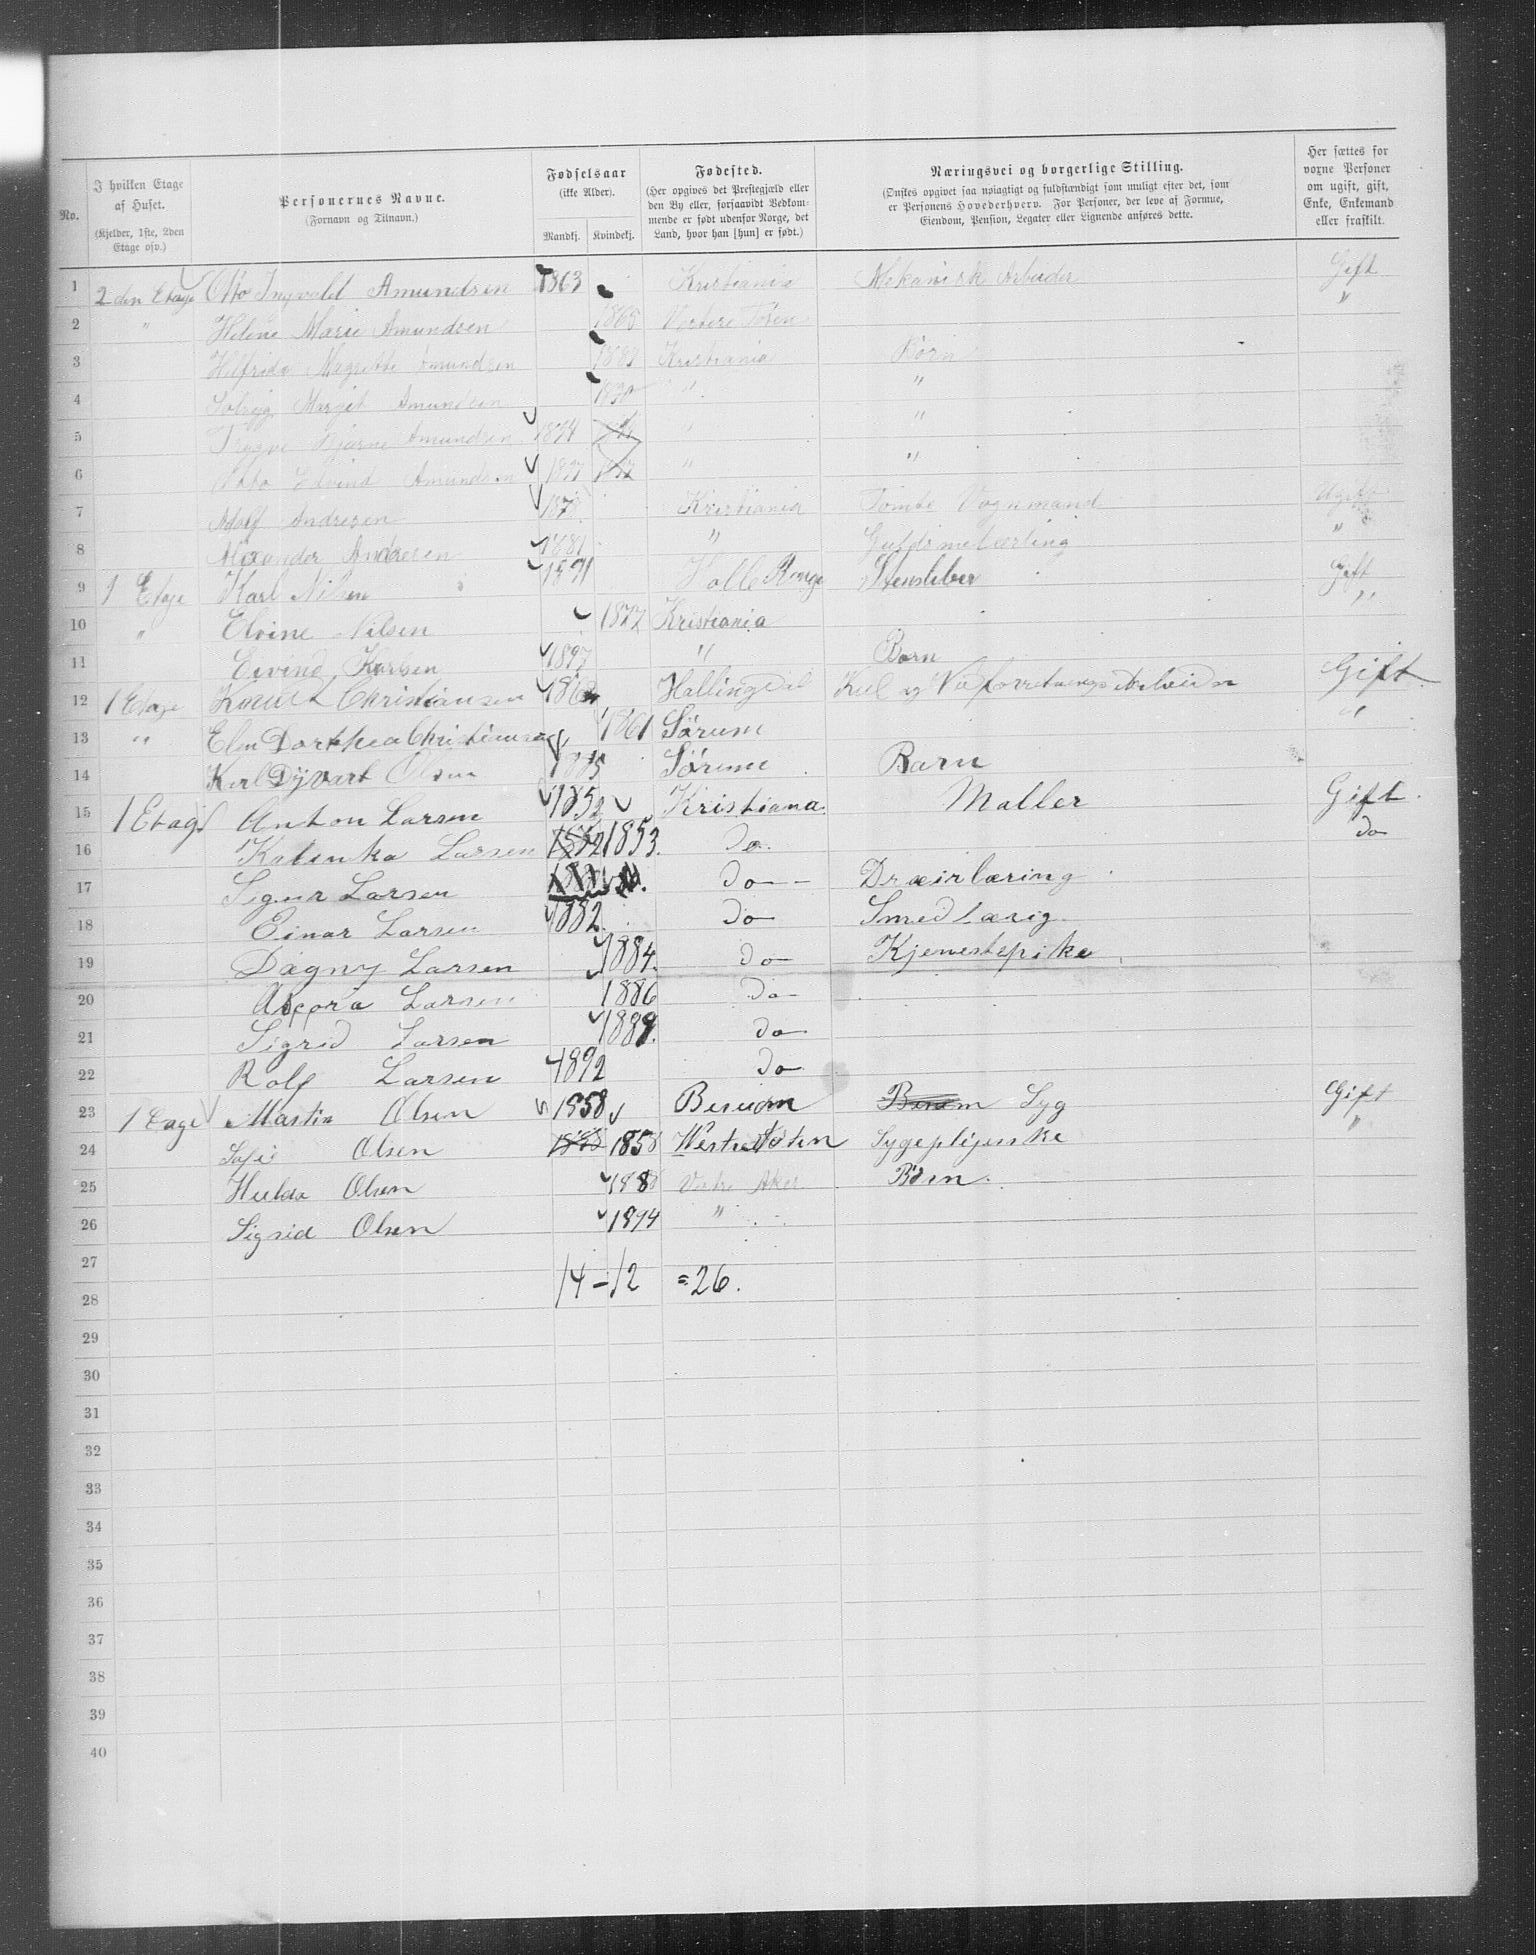 No.
I hvilken Etage af Huset. (Kjelder, 1ste, 2den Etage osv.)
Personernes Navne. (Fornavn og Tilnavn.)
Fødselsaar (ikke Alder). Mandkj. Kvindekj.
Fødested. (Her opgives det Prestegjæld eller den By eller, forsaavidt Vedkommende er født udenfor Norge, det Land, hvor han [hun] er født.)
Næringsvei og borgerlige Stilling. (Ønskes opgivet saa nøiagtigt og fuldstændigt som muligt efter det, som er Personens Hovederhverv. For Personer, der leve af Formue, Eiendom, Pension, Legater eller Lignende anføres dette.
Her sættes for voxne Personer om ugift, gift, Enke, Enkemand eller fraskilt.
1 2den Etage Otto Ingvald Amundsen 1863 Kristiania Mekanisk Arbeider Gift
2 " Helene Marie Amundsen 1865 Vestere Toten "
3 Helfrida Magrethe Amundsen Kristiania Børn
4 Solveig Margit Amundsen " "
5 Trygve Bjarne Amundsen 1894 " "
6 Otto Edvind Amundsen 1897 " "
7 Adolf Andresen 1878 Kristiania Tomte Vognmand Ugift
8 Alexander Andresen 1881 " Guldsmelærling "
9 1 Etage Karl Nilsen 1871 Gift
10 " Elvine Nilsen 1877 Kristiania "
11 Eivind Karlsen 1897 " Barn
12 1 Etage Knut Christiansen Hallingdal Kul og Vedforretnings Arbeider Gift
13 " Elen Dorthea Christiansen 1861 Sørum "
14 Karl Dyvart Olsen 1885 Sørum Barn
15 1 Etage Anton Larsen 1852 Kristiana. Maller Gift.
16 Kalinka Larsen 1852 1853. Do. do
17 Sigur Larsen do Dræirlæring
18 Einar Larsen 1882. do Smedlærig
19 Dagny Larsen 1884. do Kjenestepike
20 Larsen 1886 do
21 Sigrid Larsen 1889. do
22 Rolf Larsen 1892 do
23 1 Etage Martin Olsen 1858 Berum Berum Syg Gift
24 Sofie Olsen 1858 1858 Westre Toten Sygeplijerske "
25 Hulda Olsen 1888 Vestre Aker Børn.
26 Sigrid Olsen 1894 "
27
14 – 12 = 26.
28
29
30
31
32
33
34
35
36
37
38
39
40